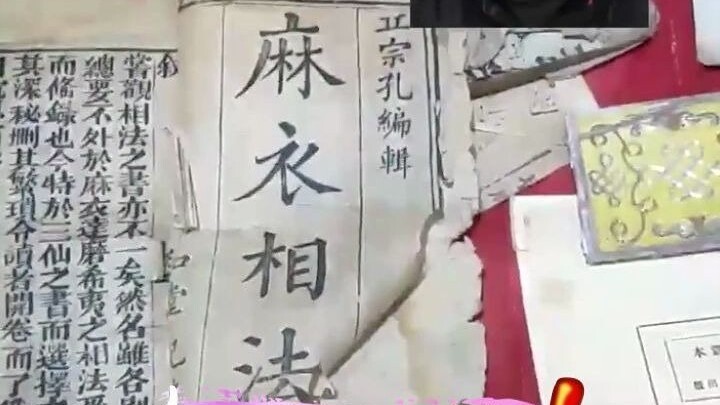 丘宗孔編輯
麻衣相法
嘗觀相法之書亦不一矣然名雖各別
總要不外於麻衣達磨希夷之相法
而脩錄也今特於三仙之書而選擇
其深秘刪其繁瑣令讀者開卷而了